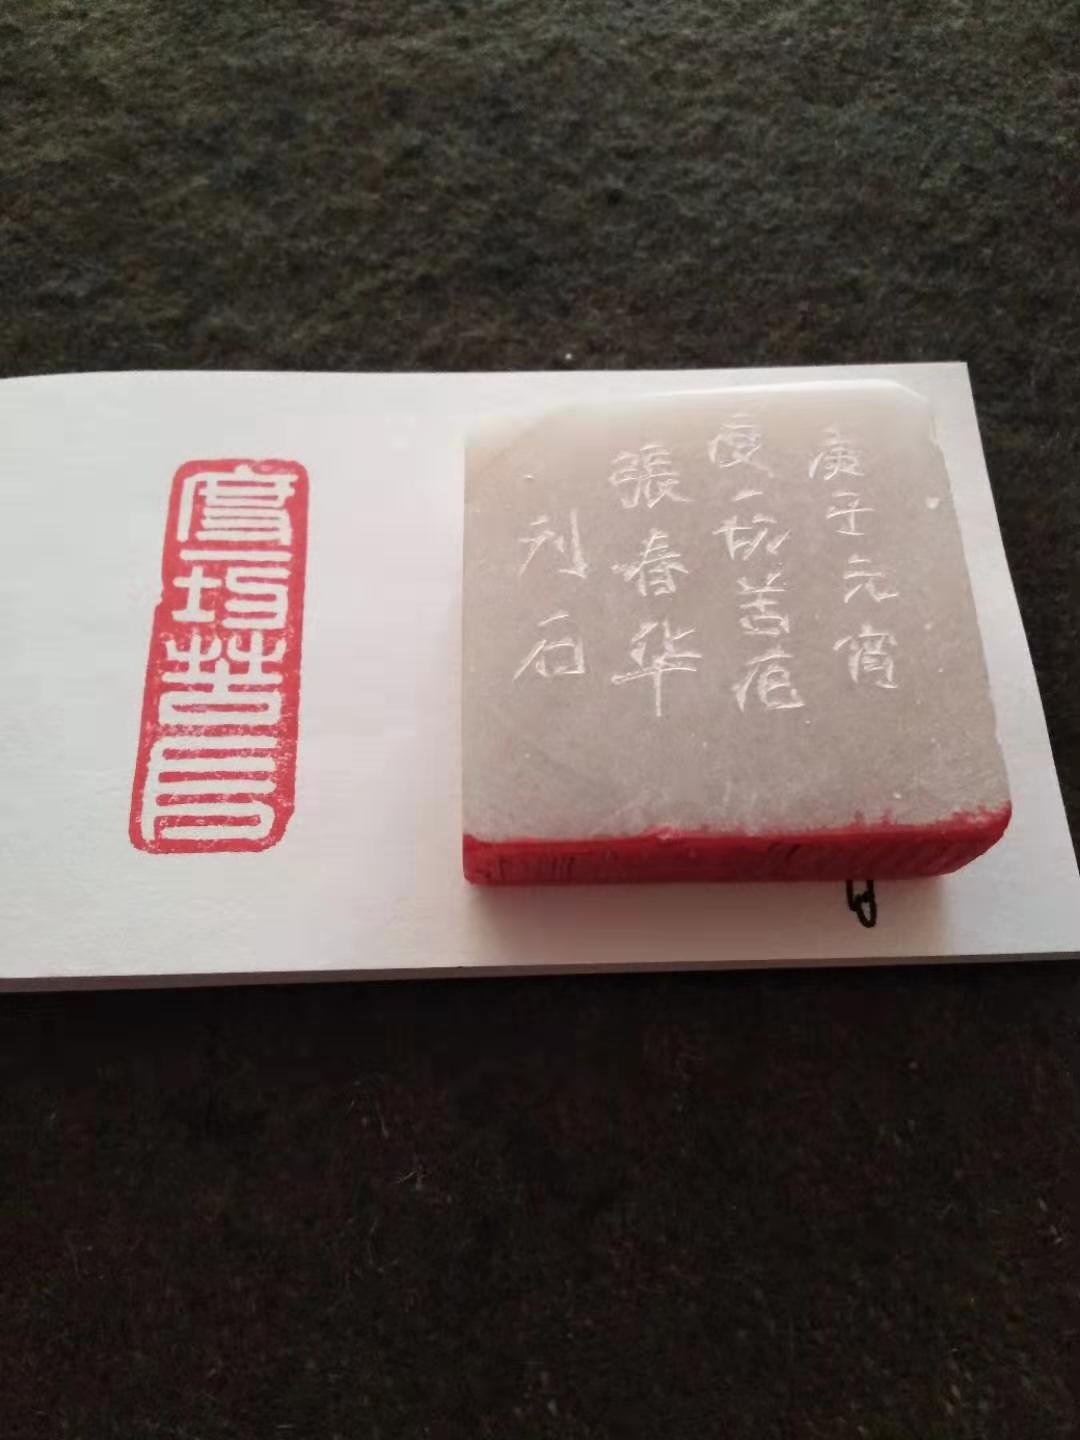 庚子元宵
度一切苦厄
張春华
刊石
度一切苦厄